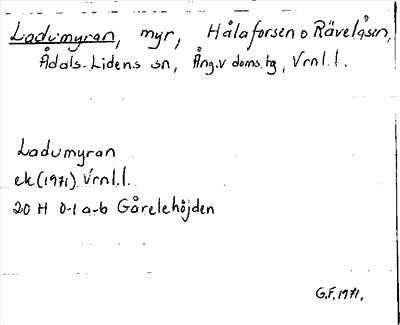 Ladumyran, myr, Hålaforsen o Rävelåsen,
Ådals-Lidens sn, Ång.v doms.tg, Vrnl.l.
Ladumyran
ek (1971) Vrnl.l.
20 H 0-1 a-b Gårelehöjden
G.F. 1971.